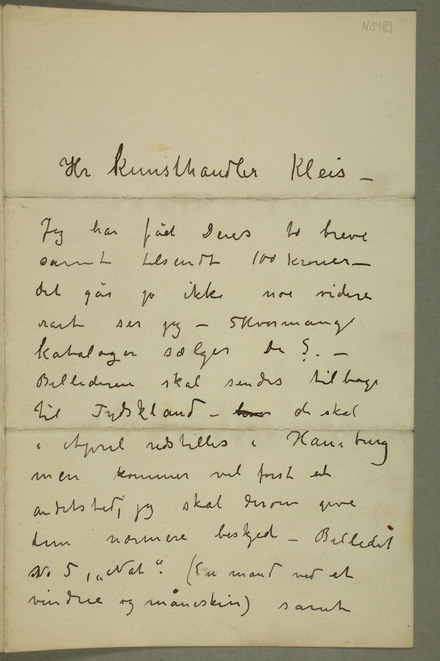 N3489
Hr Kunsthandler Kleis –
Jeg har fåd Deres to breve
samt tilsendt 100 kroner –
det går jo ikke noe videre
rart ser jeg – Hvormange
kataloger sælger De ?. –
Billederne skal sendes tilbage
til Tydskland – de skal
i April udstilles i Hamburg
men kommer vel først et
andetsted, jeg skal derom give
dem nærmere beskjed – Billedet
No 5, „Nat“. (En mand ved et
vindue og måneskin) samt